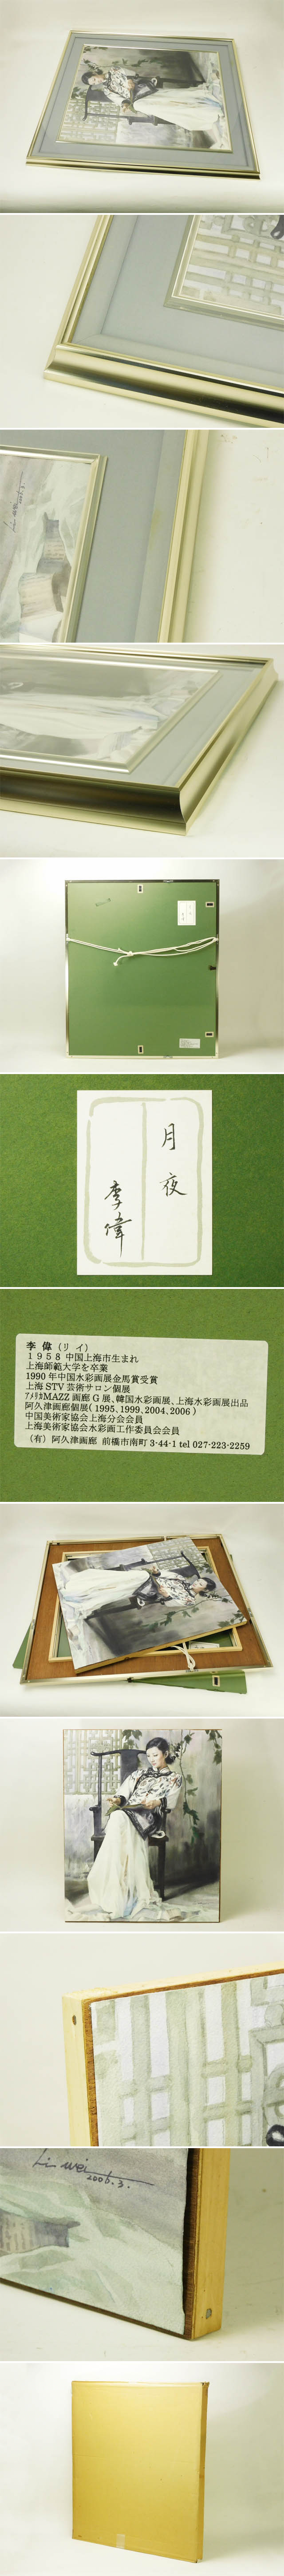 月夜
李偉
李 偉 (リ イ)
1958 中国上海市生まれ
上海師範大学を卒業
1990 年中国水彩画展金馬賞受賞
上海 STV 芸術サロン個展
ｱﾒﾘｶMAZZ 画廊 G 展、韓国水彩画展、上海水彩画展出品
阿久津画廊個展( 1995、1999、2004、2006 )
中国美術家協会上海分会会員
上海美術家協会水彩画工作委員会会員
(有) 阿久津画廊 前橋市南町 3-44-1 tel 027-223-2259
Li wei
2006.3.